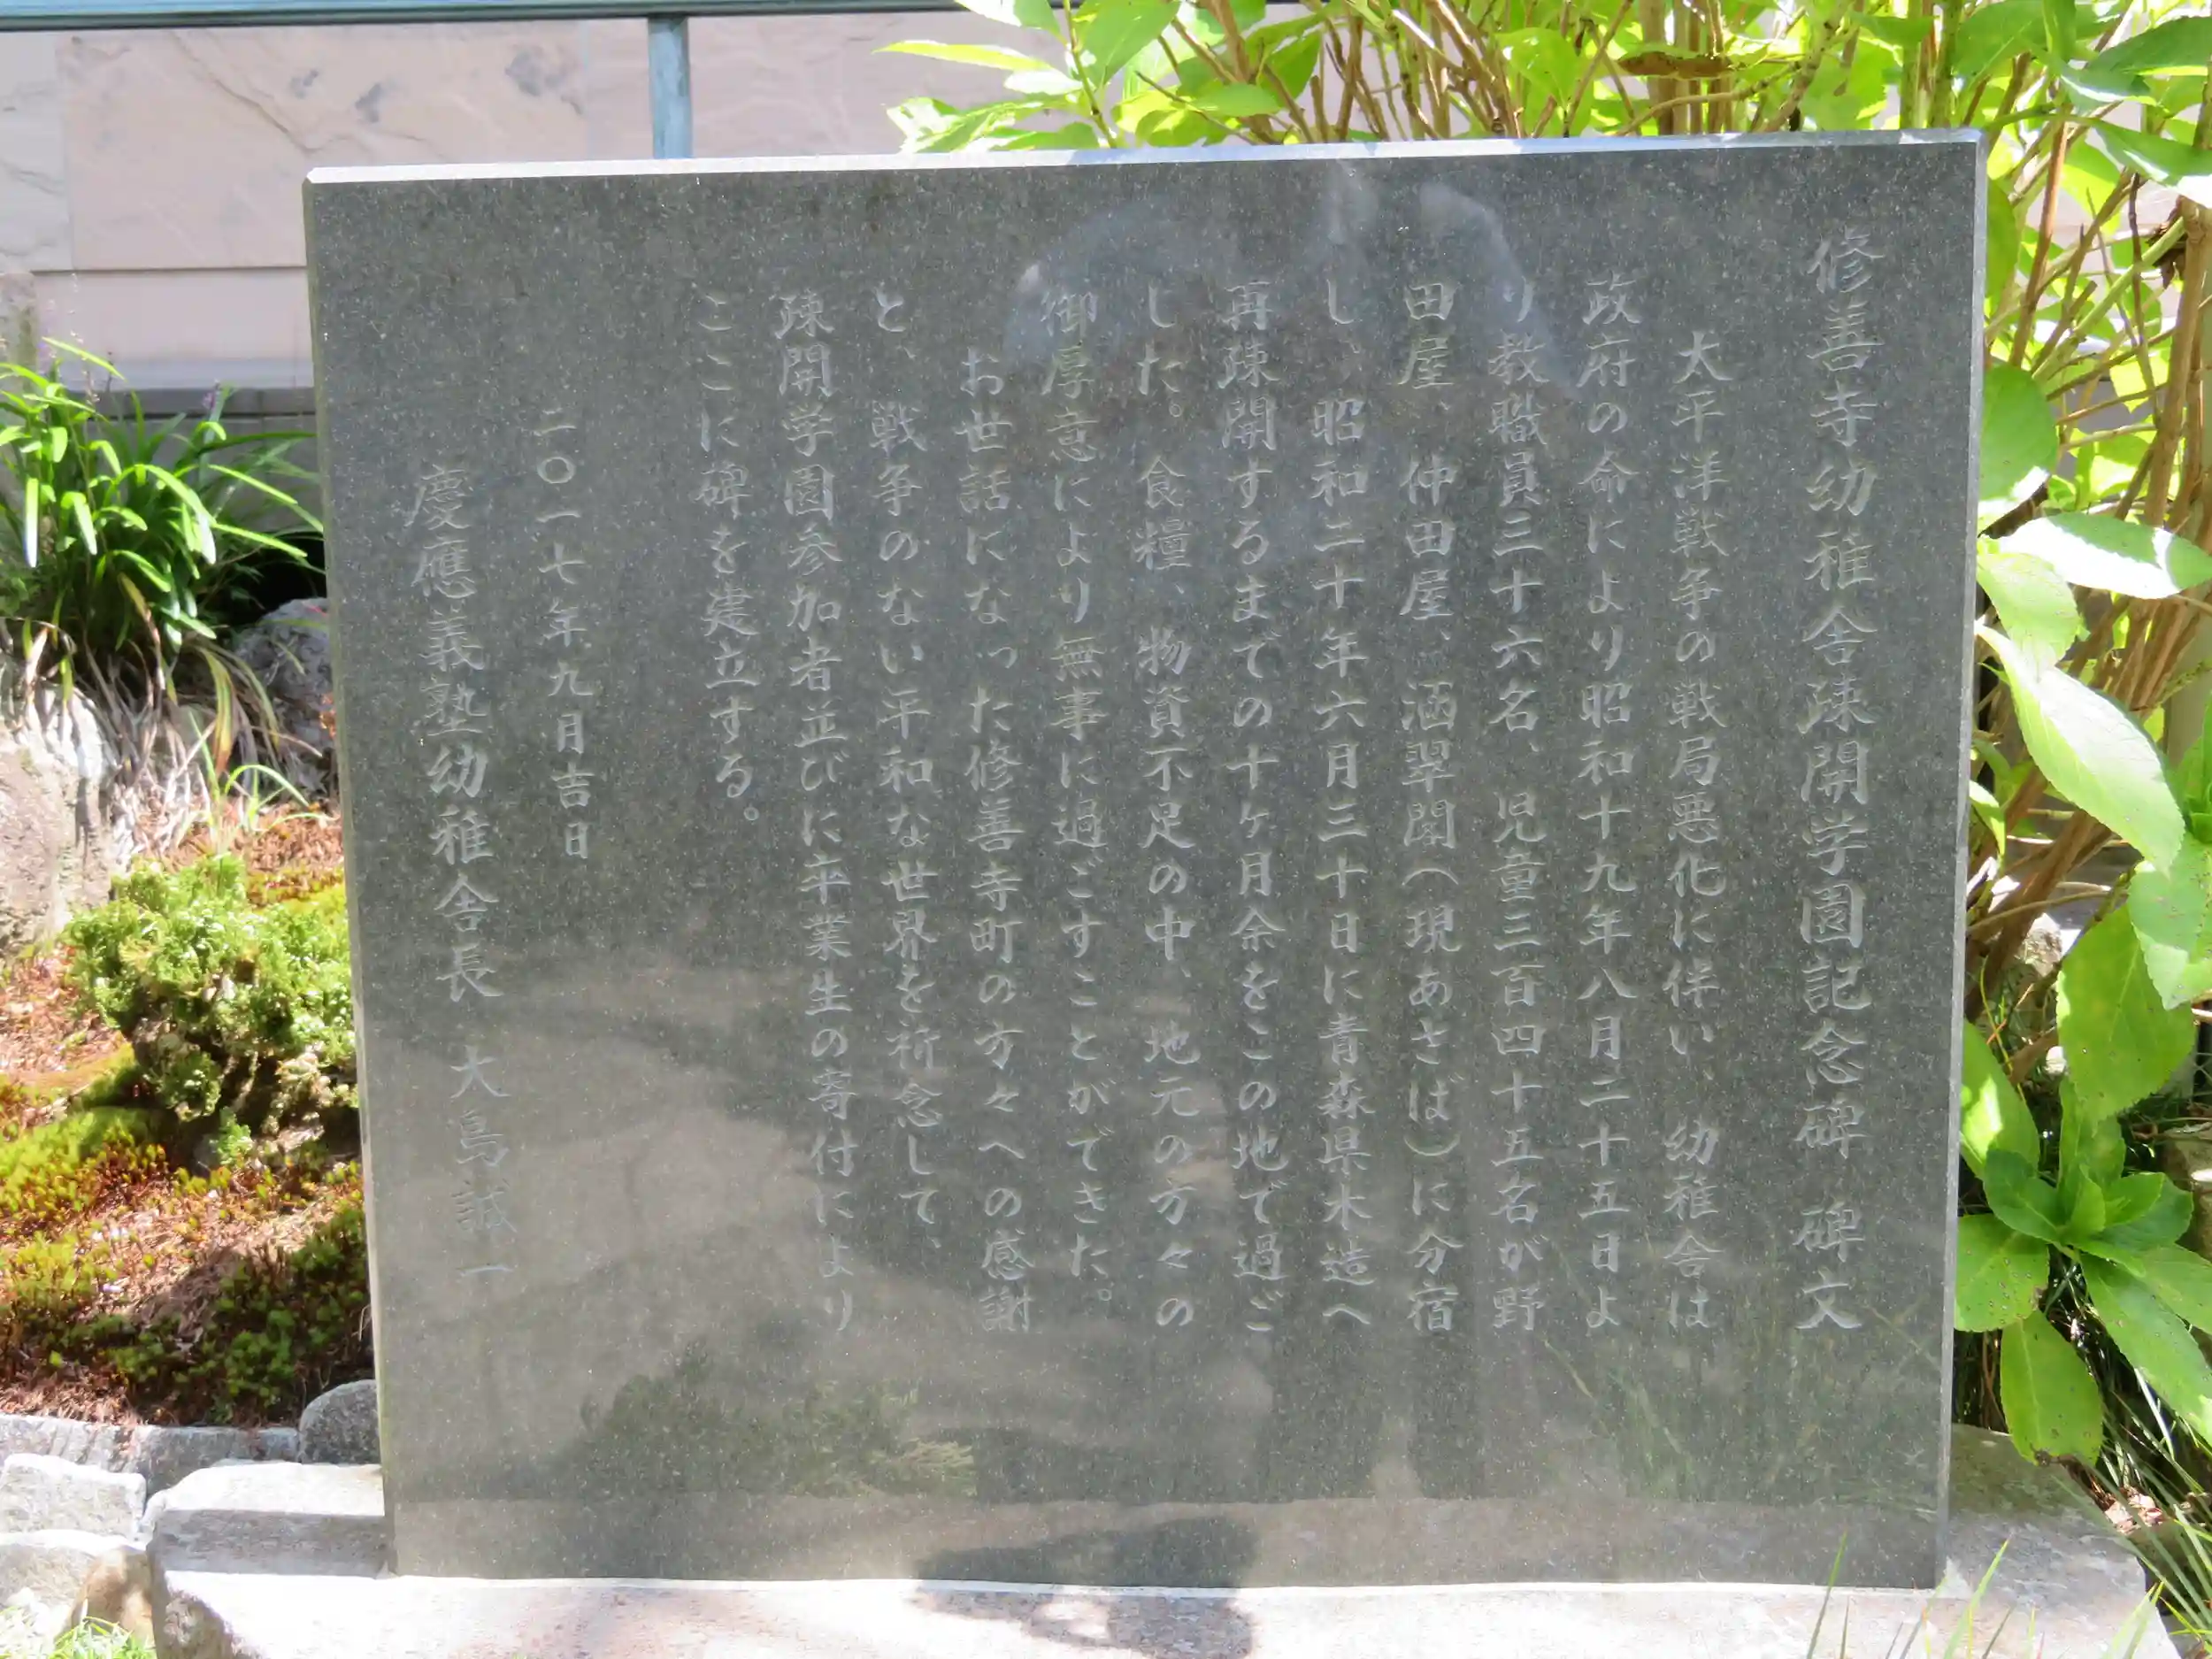 修善寺幼稚舎疎開学園記念碑 碑文
大平洋戦争の戦局悪化に伴い、幼稚舎は
政府の命により昭和十九年八月二十五日よ
り教職員三十六名、児童三百四十五名が野
田屋、仲田屋、涵翠閣(現あさば)に分宿
し、昭和二十年六月三十日に青森県木造へ
再疎開するまでの十ヶ月余をこの地で過ご
した。食糧、物資不足の中、地元の方々の
御厚意により無事に過ごすことができた。
お世話になった修善寺町の方々への感謝
と、戦争のない平和な世界を祈念して、
疎開学園参加者並びに卒業生の寄付により
ここに碑を建立する。
二〇一七年九月吉日
慶應義塾幼稚舎長 大島誠一